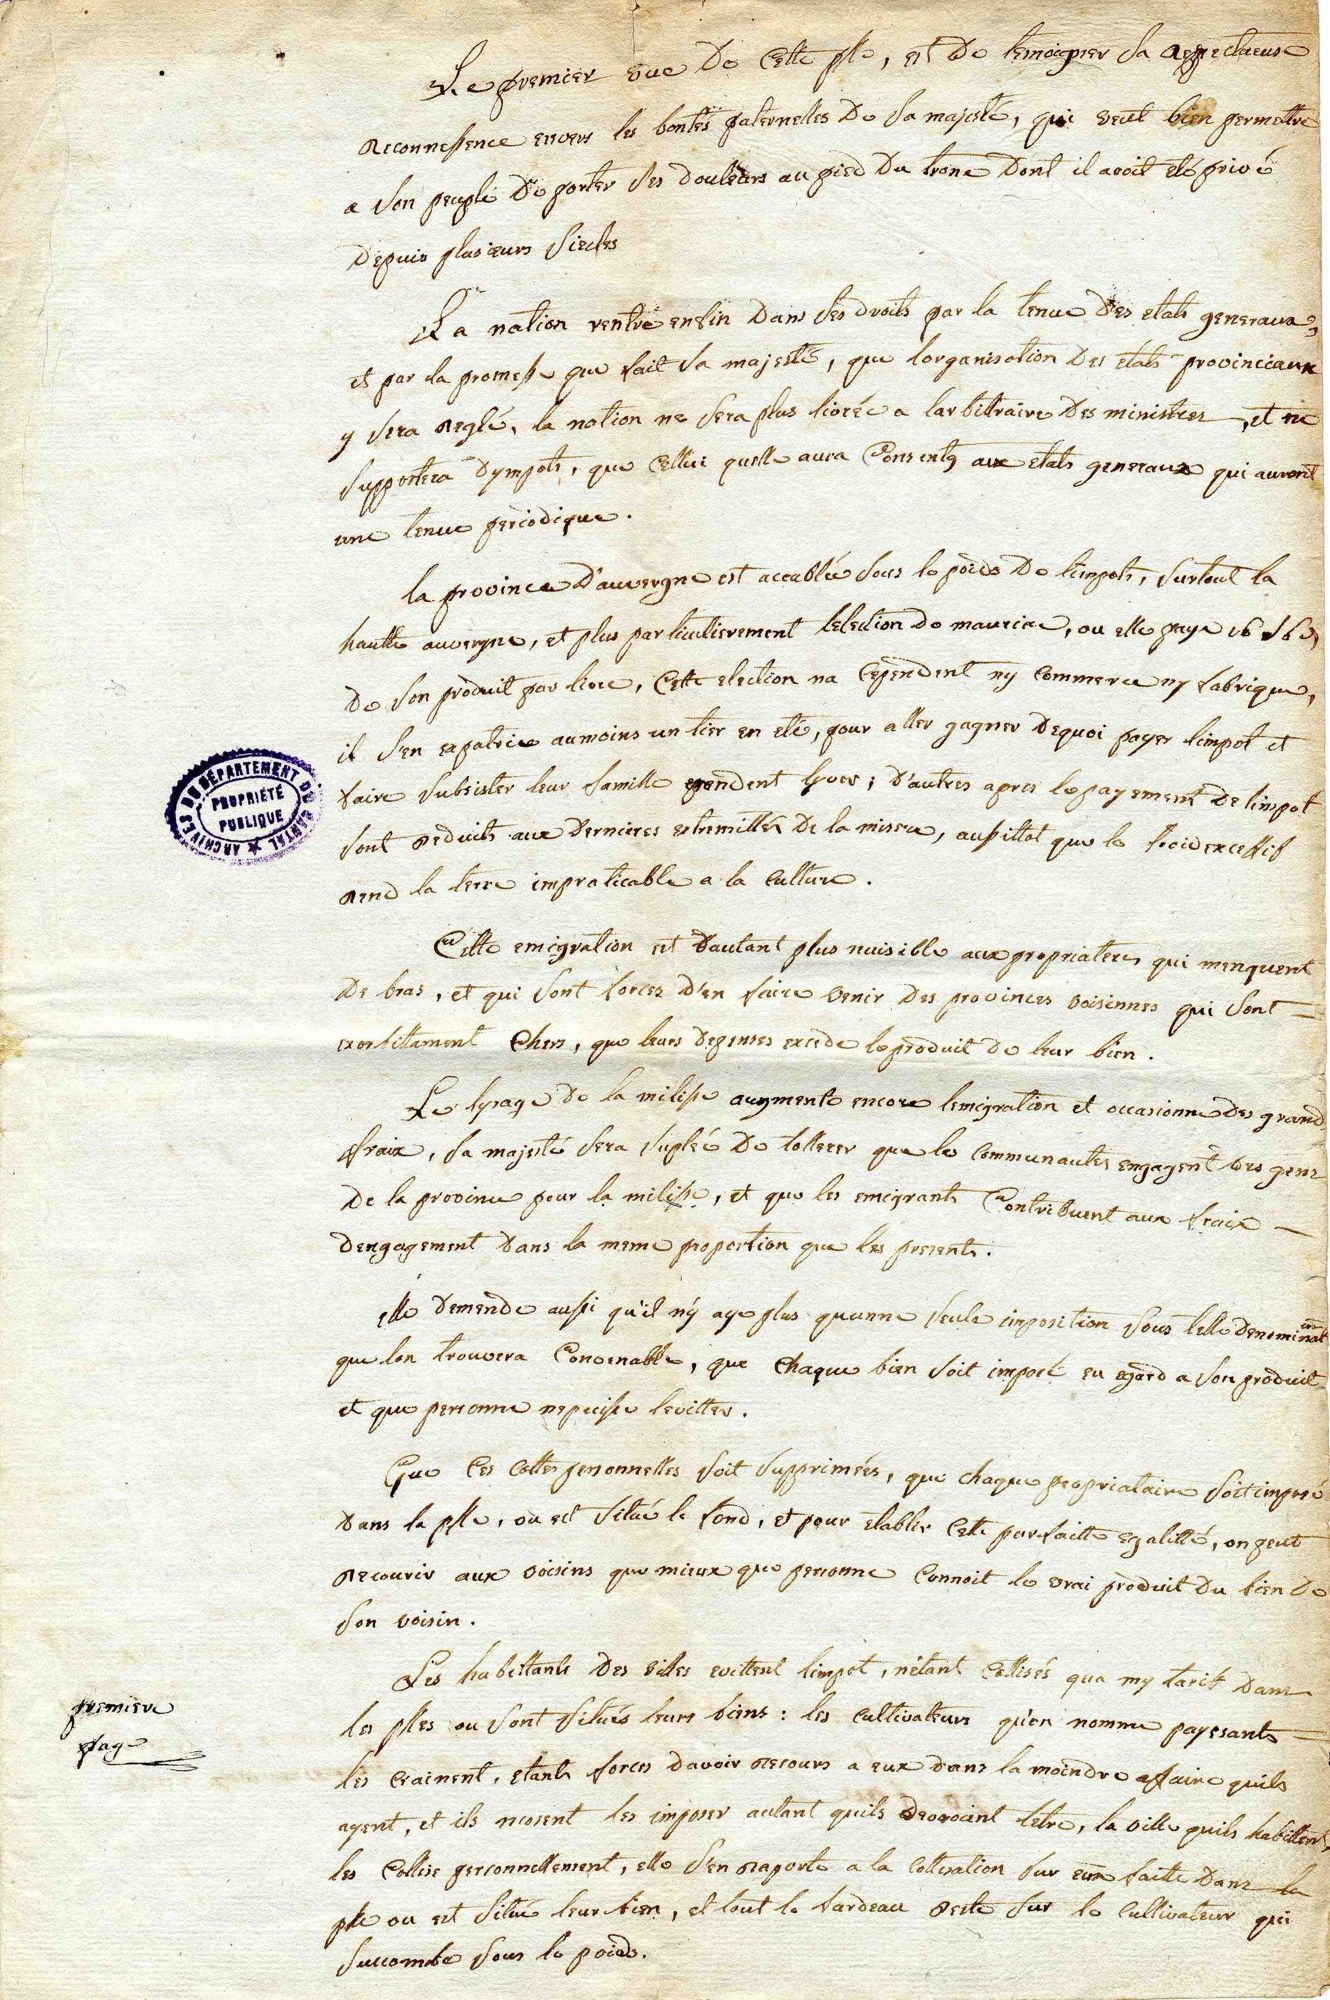 Le premier vue de cette plle, est de temoigner sa respectueuse
reconnessence envers les bontés paternelles de sa majesté, qui veut bien permettre
a son peuple de porter ses douleurs au pied du trone dont il avoit eté privé
depuis plusieurs siecles
La nation rentre enfin dans ses droits par la tenue des etats generaux,
et par la promesse que fait sa majesté, que lorganisation des etats provinciaux
y sera reglé, la nation ne sera plus livrée a larbittraire des ministres, et ne
supportera dympots, que cellui quelle aura consenty aux etats generaux qui auront
une tenue periodique.
la province d'auvergne est accablée sous le poids de limpots, surtout la
hautte auvergne, et plus particulierement lelection de mauriac, ou elle paye 16 s 6 d,
de son produit par livre, cette election na cependent ny commerce ny fabrique,
il s'en expatrie aumoins un tier en eté, pour aller gagner dequoi payer limpot et
faire subsister leur famille pendent lyver; d'autres apres le payement de limpot
sont reduits aux dernieres extremittés de la misere, aussittot que le froid excessif
rend la terre impraticable a la culture.
Cette emigration est d'autant plus nuisible aux propriateres qui menquent
de bras, et qui sont forcez d'en faire venir des provinces voisinnes qui sont
exorbittament chers, que leurs depenses excede le produit de leur bien.
Le tyrage de la milisse augmente encore lemigration et occasionne des grand
fraix, sa majesté sera supleé de tollerer que les communautes engagent des gens
de la province pour la milisse, et que les emigrants contribuent aux fraix
dengagement dans la meme proportion que les presents.
elle demende aussi qu'il n'y aye plus quunne seule imposition sous telle denomination
que lon trouvera convenable, que chaque bien soit imposé eu egard a son produit
et que personne nepuisse levitter.
Que ces cottes personnelles soit supprimées, que chaque propriataire soit imposé
dans la plle, ou est situé le fond, et pour etablir cette parfaitte egalitté, on peut
recourir aux voisins que mieux que personne connoit le vrai produit du bien de
son voisin.
Les habittants des villes evittent limpot, n'etant cottisés qua my tarif dans
les plles ou sont situés leurs biens: les cultivateurs qu'en nomme payesants
les crainent, etants forces davoir recours a eux dans la moindre affaire quils
ayent, et ils nosent les imposer autant quils devroint letre, la ville quils habittent,
les cottise personnellement, elle s'en raporte a la cottisation sur eux faitte dans la
plle ou est situé leur bien, et tout le fardeau reste sur le cultivateur qui
succombe sous le poids.
premiere
page
ARCHIVES DU DÉPARTEMENT DU CANTAL
PROPRIÉTÉ
PUBLIQUE